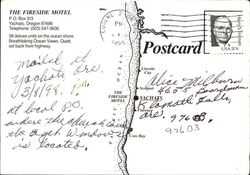 THE FIRESIDE MOTEL
P.O. BOX 313
Yachats, Oregon 97498
Telephone: (503) 547-3636
38 deluxe units on the ocean shore.
Breathtaking Ocean Views. Quiet,
set back from highway.
PM
USA 20c
Postcard
Mailed at
Yachats Ore.
3/8/98.
at local P.O.
where the church
window
is located.
Lincoln City
Newport
THE FIRESIDE MOTEL
YACHATS
Florence
Coos Bay
Alice Milburn
4605 Boardman
Klamath Falls,
Ore. 97603.
97603